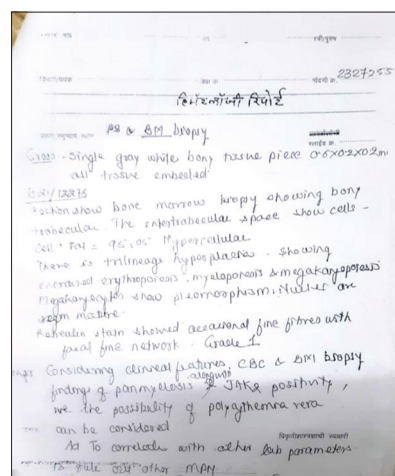 स्त्री/पुरुष
विभाग/कक्ष
नोंदणी क्र. 2327255
हिमॅटलॉजी रिपोर्ट
PS & BM biopsy
Gross - Single gray white bony tissue piece 0.5x0.2x0.2cm
all tissue embedded
section show bone marrow biopsy showing bony
trabeculae. The intertrabecular space show cells -
Cell : Fat = 95:05 Hypercellular
There is trilineage hyperplasia. Showing
increased erythropoiesis, myelopoiesis & megakaryopoiesis
Megakaryocytes show pleomorphism. Nuclei are
seen mature.
Reticulin stain showed occasional fine fibres with
focal fine network. Grade 1
Considering clinical features, CBC & BM biopsy
findings of panmyelosis alongwith JAK2 positivity,
we the possibility of polycythemia vera
can be considered
Ad To correlate with other lab parameters
to rule out other MPN